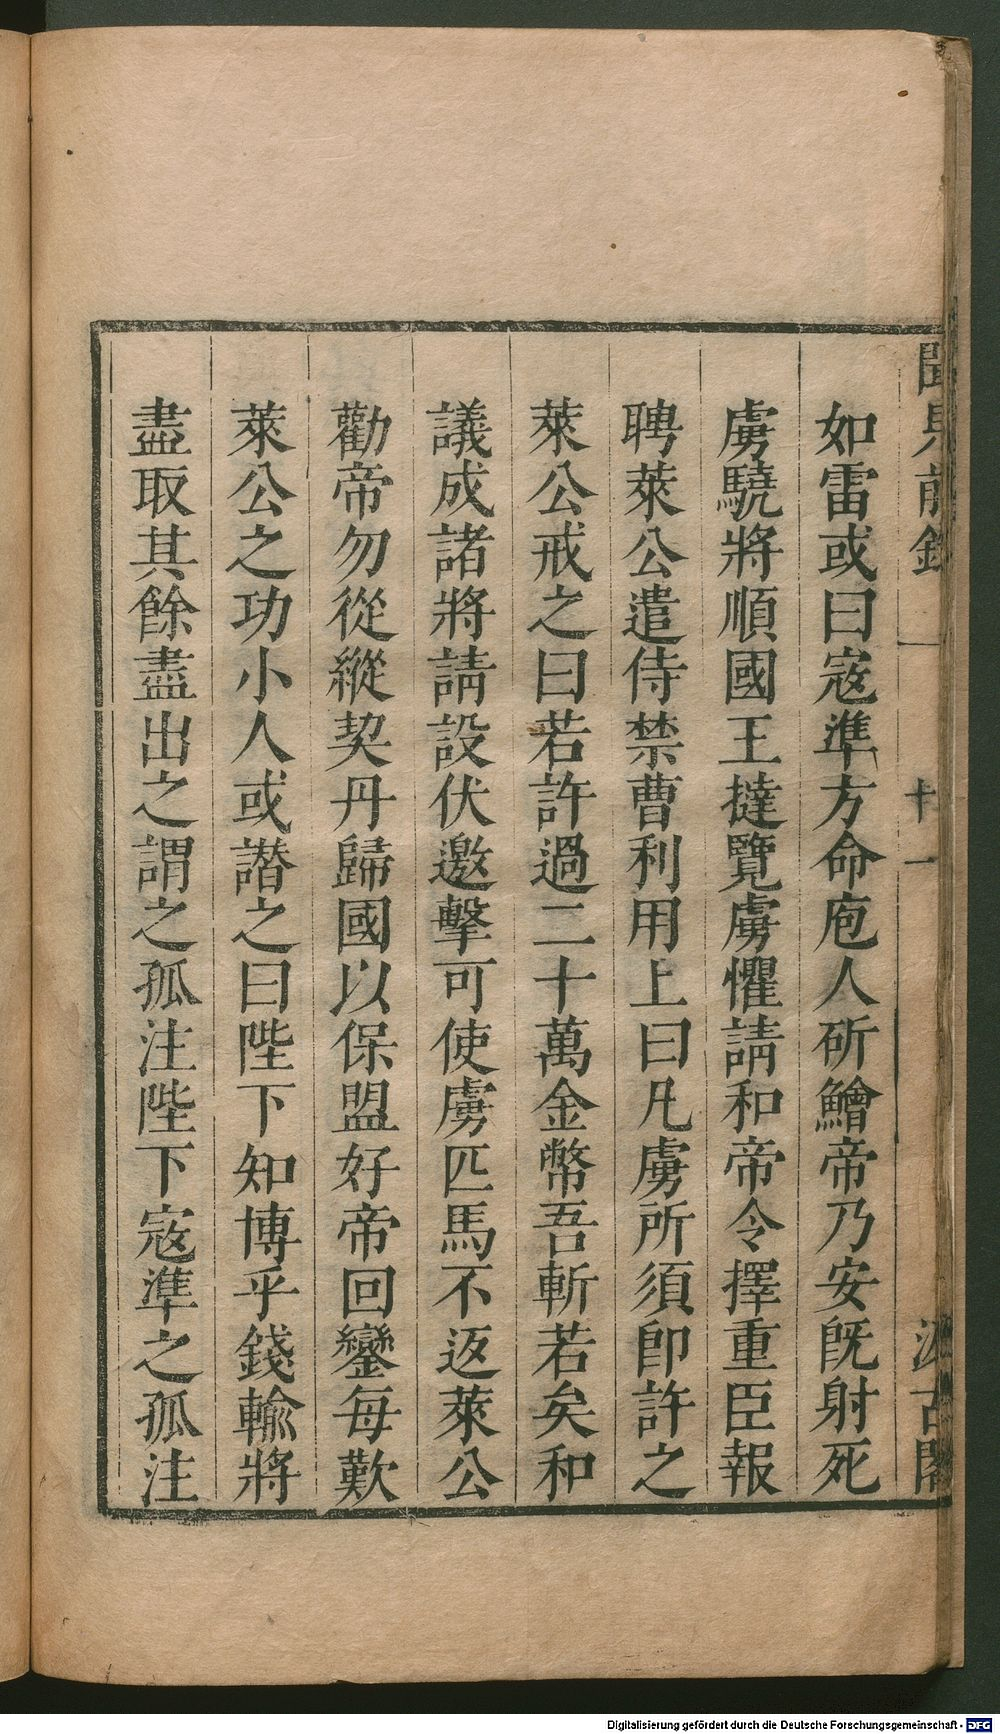 聞見前錄
一
十一
汲古閣
如雷或曰寇準方命庖人斫鱠帝乃安旣射死
虜驍將順國王撻覽虜懼請和帝令擇重臣報
聘萊公遣侍禁曹利用上曰凡虜所須卽許之
萊公戒之曰若許過二十萬金幣吾斬若矣和
議成諸將請設伏邀擊可使虜匹馬不返萊公
勸帝勿從縱契丹歸國以保盟好帝回鑾每歎
萊公之功小人或譖之曰陛下知博乎錢輸將
盡取其餘盡出之謂之孤注陛下寇準之孤注
Digitalisierung gefördert durch die Deutsche Forschungsgemeinschaft - DFG